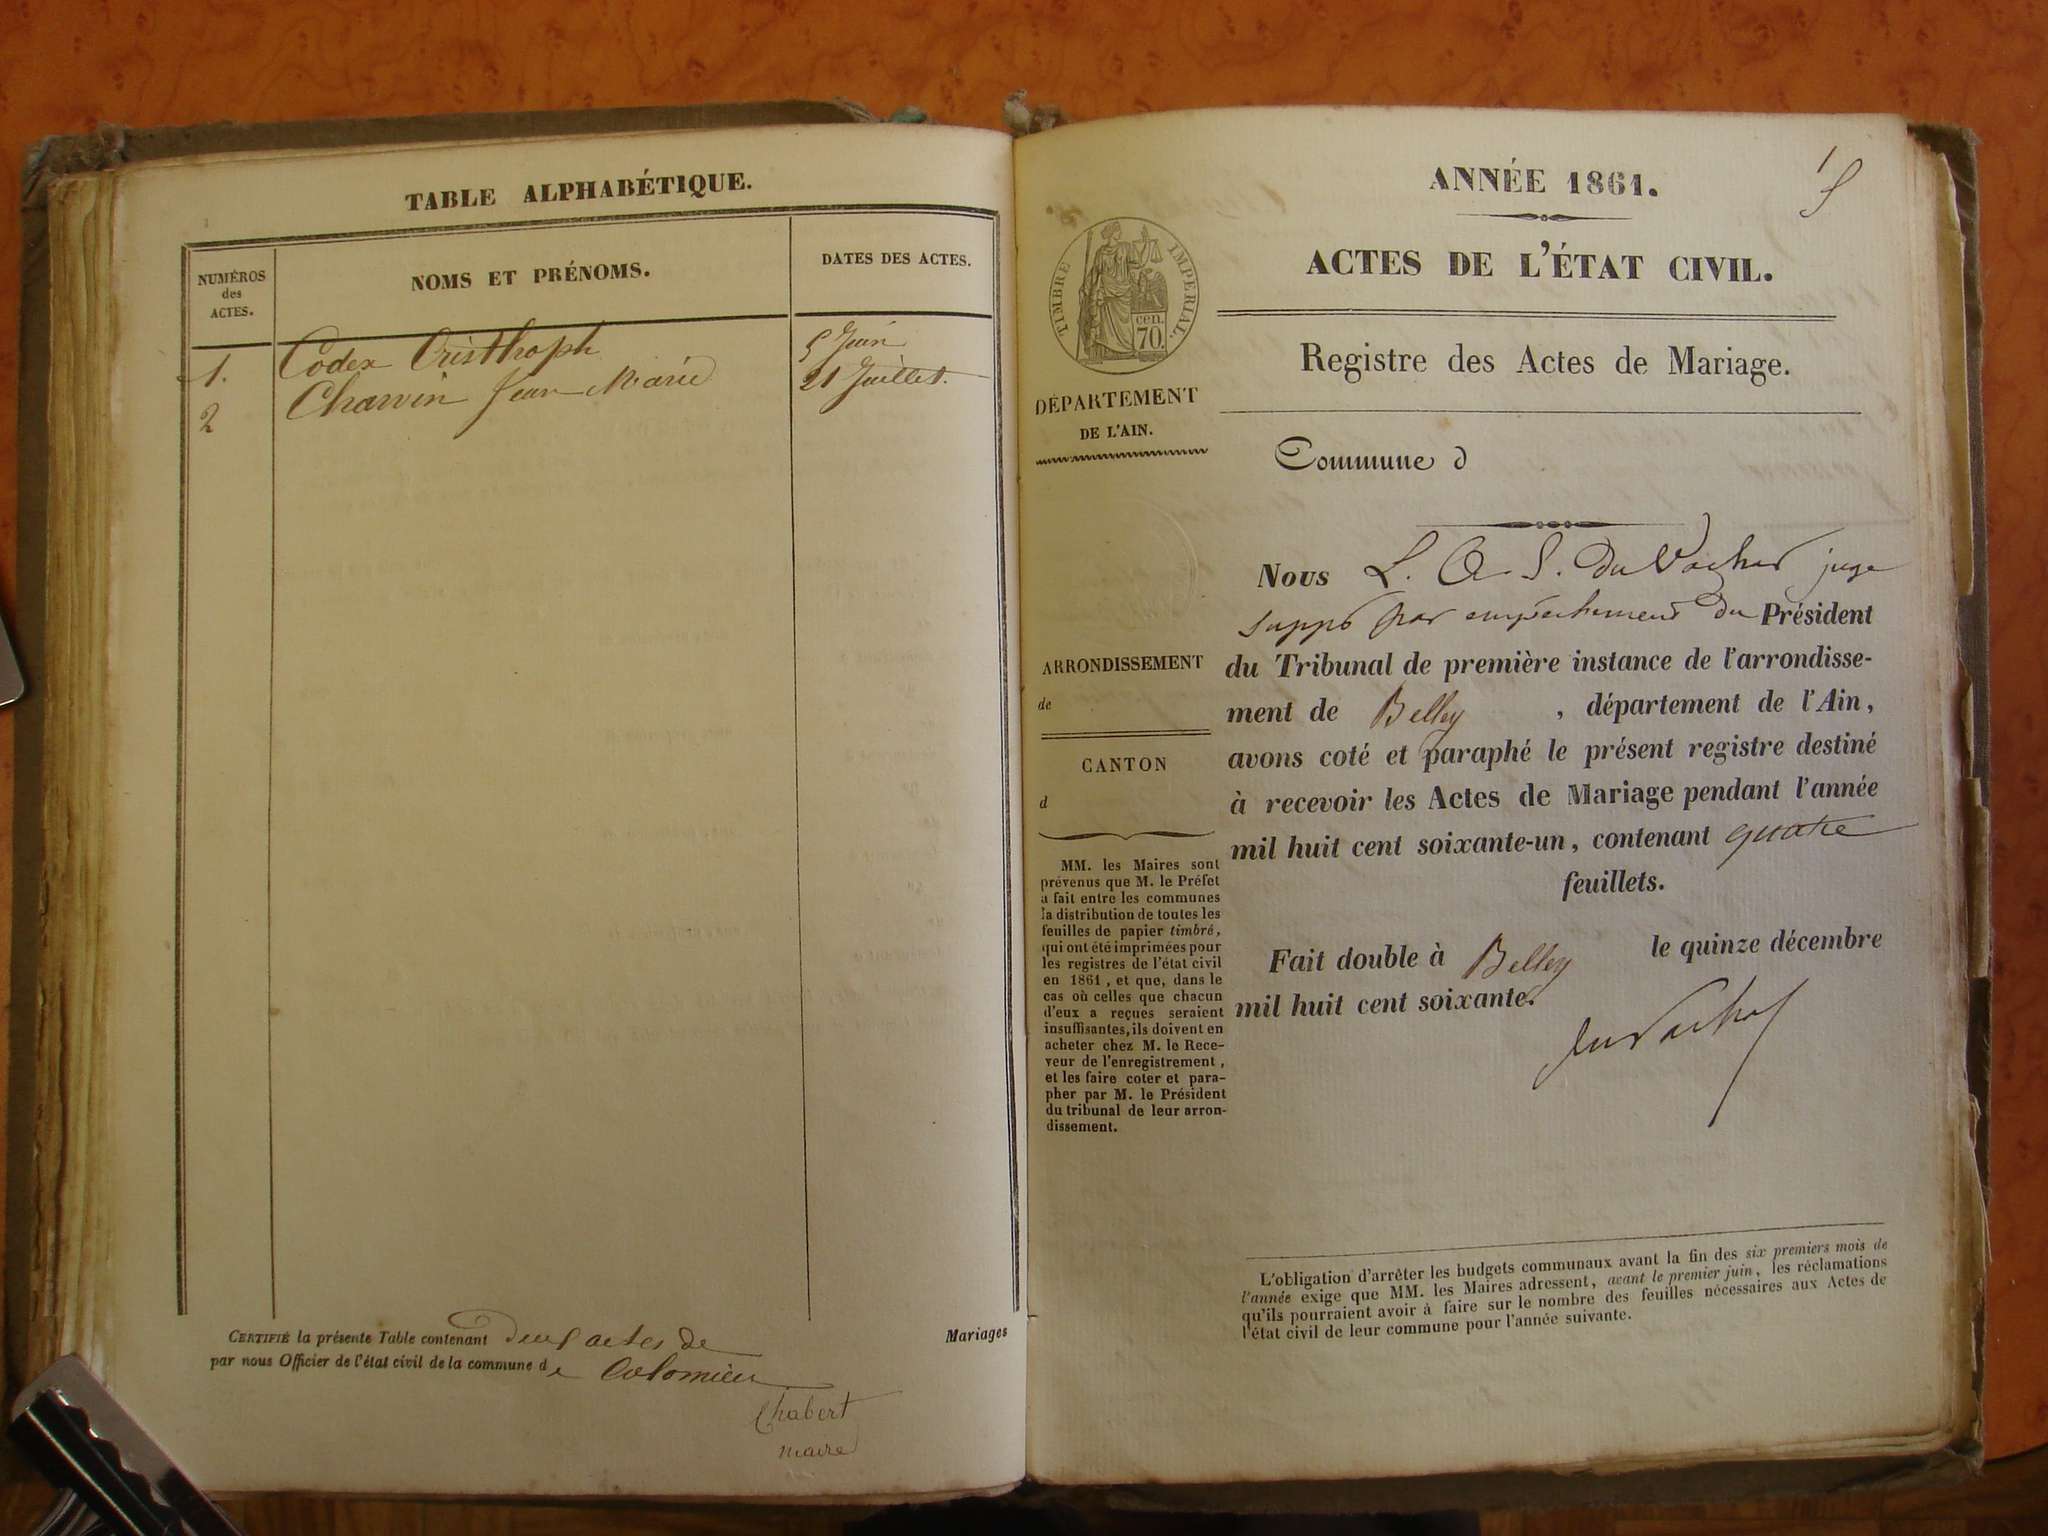 TABLE ALPHABÉTIQUE.
NUMÉROS
des
ACTES.
NOMS ET PRÉNOMS.
DATES DES ACTES.
1. Codex Cristhoph 5 Juin
2 Charvin Jean Marie 21 Juillet.
CERTIFIÉ la présente Table contenant Deux actes de Mariages
par nous Officier de l'état civil de la commune de Colomieu
Chabert
maire
1
ANNÉE 1861.
ACTES DE L'ÉTAT CIVIL.
Registre des Actes de Mariage.
TIMBRE IMPÉRIAL.
cen.
70.
DÉPARTEMENT
DE L'AIN.
Commune d
ARRONDISSEMENT
de
CANTON
d
MM. les Maires sont
prévenus que M. le Préfet
a fait entre les communes
la distribution de toutes les
feuilles de papier timbré,
qui ont été imprimées pour
les registres de l'état civil
en 1861, et que, dans le
cas où celles que chacun
d'eux a reçues seraient
insuffisantes, ils doivent en
acheter chez M. le Rece-
veur de l'enregistrement,
et les faire coter et para-
pher par M. le Président
du tribunal de leur arron-
dissement.
Nous L. juge
supp par empêchement du Président
du Tribunal de première instance de l'arrondisse-
ment de Belley, département de l'Ain,
avons coté et paraphé le présent registre destiné
à recevoir les Actes de Mariage pendant l'année
mil huit cent soixante-un, contenant quatre
feuillets.
Fait double à Belley le quinze décembre
mil huit cent soixante.
L'obligation d'arrêter les budgets communaux avant la fin des six premiers mois de
l'année exige que MM. les Maires adressent, avant le premier juin, les réclamations
qu'ils pourraient avoir à faire sur le nombre des feuilles nécessaires aux Actes de
l'état civil de leur commune pour l'année suivante.